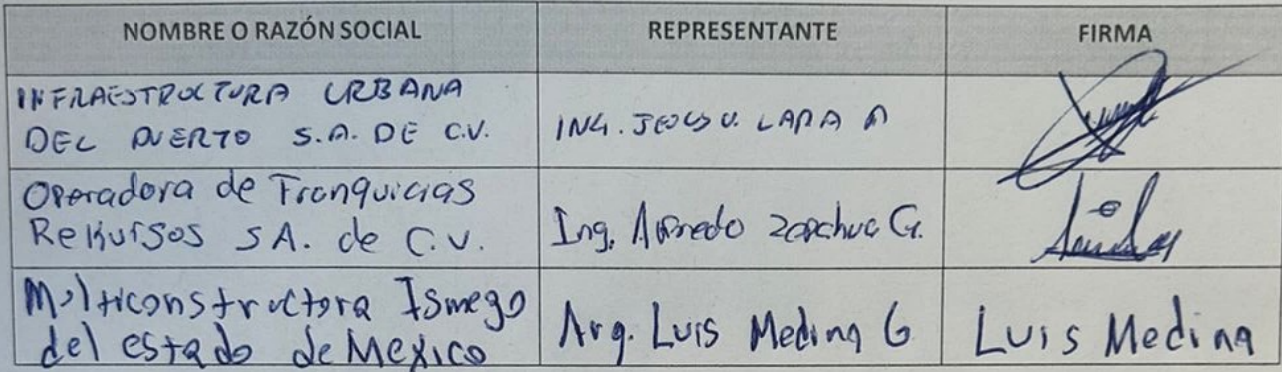 NOMBRE O RAZÓN SOCIAL REPRESENTANTE FIRMA
INFRAESTRUCTURA URBANA
DEL PUERTO S.A. DE C.V. ING. JESUS U. LARA A
Operadora de Franquicias
Rekursos SA. de C.V. Ing. Alfredo G.
Multiconstructora Ismego
del estado de Mexico Arq. Luis Medina G Luis Medina